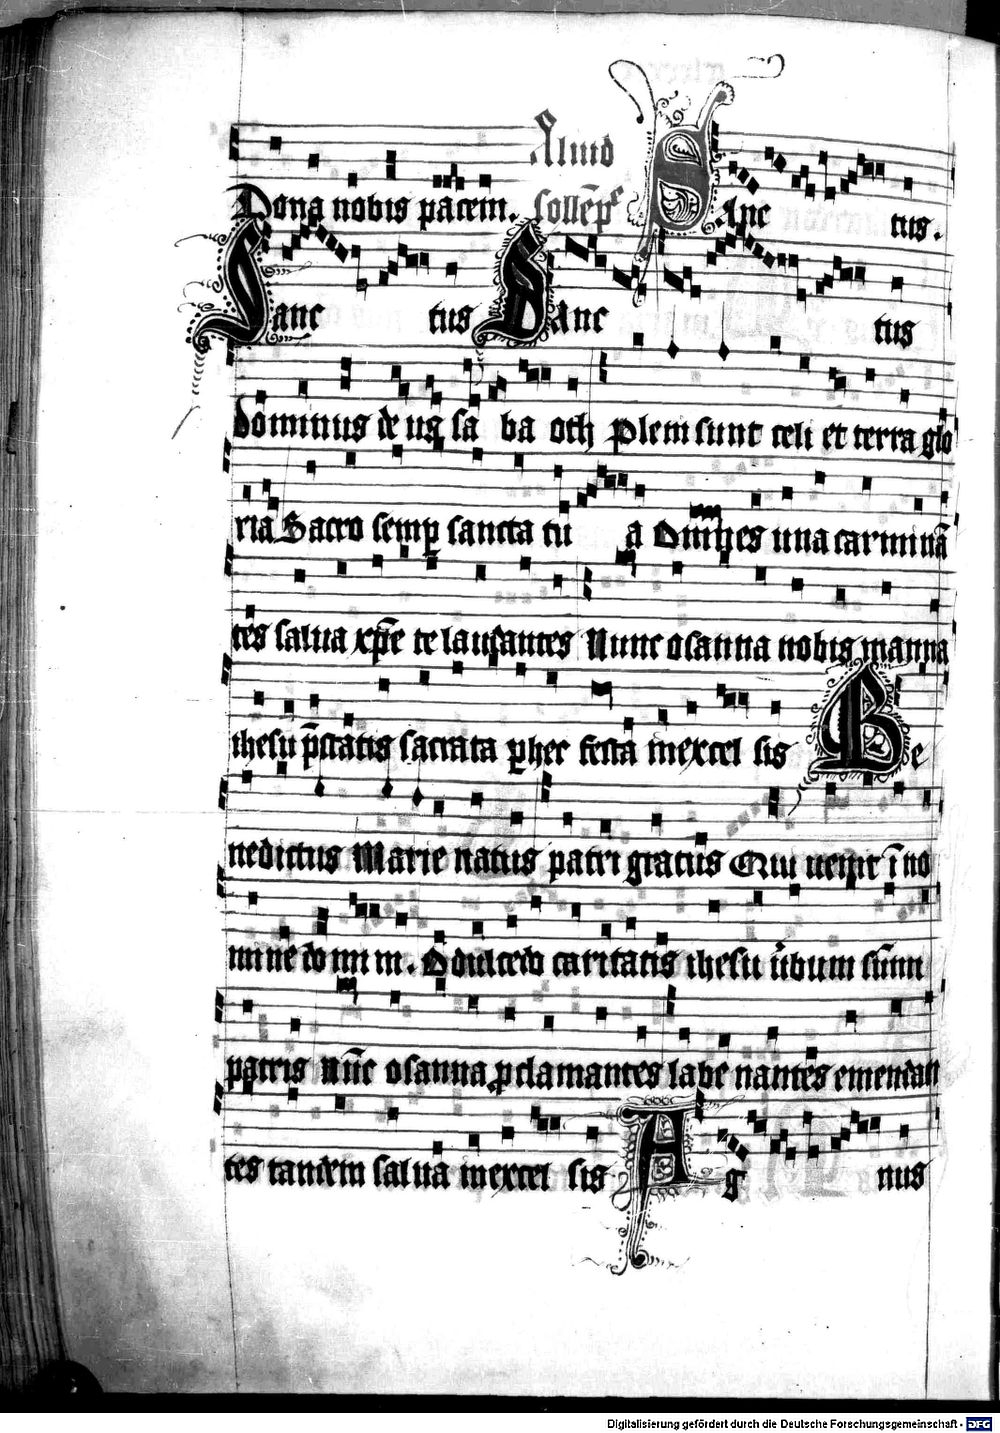 Aliud
Dona nobis pacem. sollēp̄ Sanc tus.
Sanc tus Sanc tus
dominus de us sa ba oth Pleni sunt celi et terra glo
ria Sacro semp̱ sancta tu a Om̄nes una carminā
tes salua xp̄e te laudantes Nunc osanna nobis manna
ihesu p̄statis sacrata ꝑ hec festa inexcel sis Be
nedictus Marie natus patri gratus Qui uenit ī no
mine do mi ni. O dulcedo caritatis ihesu u̓bum sum̄i
patris nūc osanna ꝓclamantes labe nantes emendan
tes tandem salua inexcel sis Ag nus
Digitalisierung gefördert durch die Deutsche Forschungsgemeinschaft - DFG